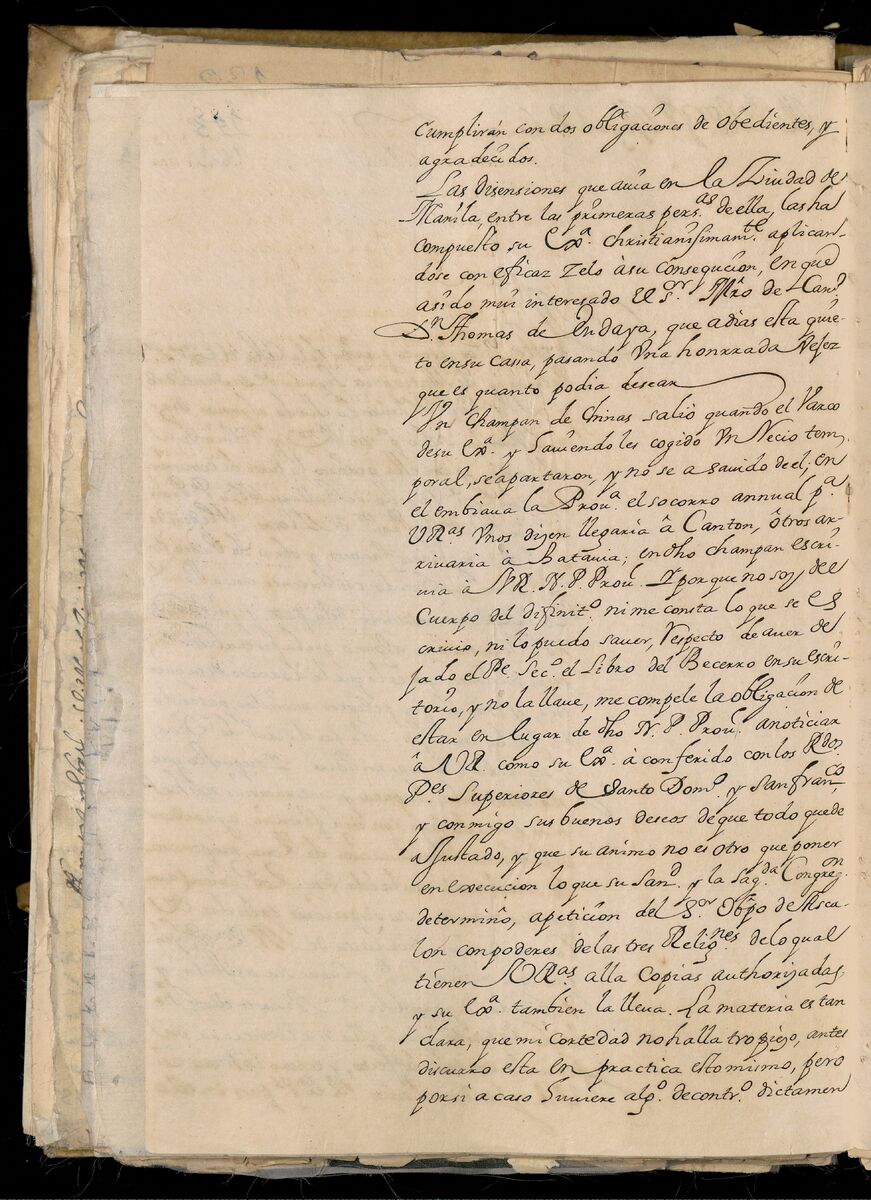 cumplirán con dos obligaciones de obedientes, y
agradecidos.
Las disensiones que auia en la Ziudad de
Manila, entre las primeras pers.as de ella, las ha
compuesto su Exa. christianisimamte. aplican-
dose con eficaz zelo à su consegucion, en que
asido mui interesado el Sr. Mro de Camp.
Dn. Thomas de Endaya, que adias esta quie-
to ensu cassa, pasando Vna honrrada Vejez
que es quanto podia desear
Vn champan de chinas saliò quando el Varco
desu Exa. y haviendoles cogido Vn Recio tem-
poral, se apartaron, y no se a savido de el; en
el embiaua la Prou.a el socorro annual p.a
VRas Vnos dizen llegaria â Canton, ôtros ar-
riuaria à Batauia; en dho champan escri-
uia à VR. N. P. Prou.l Y porque no soy del
Cuerpo del difinit.o ni me consta lo que se es
criuio, ni lo puedo saver, Respecto de aver de
jado el Pe. Sec.o el Libro del Becerro en su escri-
torio, y no la llaue, me compele la obligacion de
estar en lugar de dho N. P. Prou.l anoticiar
â VR. como su Exa. à conferido con los Rdos.
P.es Superiores de Santo Dom.o y San franco,
y conmigo sus buenos deseos de que todo quede
ajustado, y que su animo no es otro que poner
en execucion lo que su San.d y la sag.da Congreg.n
determinò, a peticion del Sr. Obpo de Asca-
lon con poderes de las tres Relig.nes de lo qual
tienen VRas alla Copias authorizadas,
y su Exa. tambien la lleua. La materia es tan
clara, que mi cortedad no halla tropiezo, antes
discurro esta en practica esto mismo, pero
por si a caso huuiere alg.o de contr.o dictamen